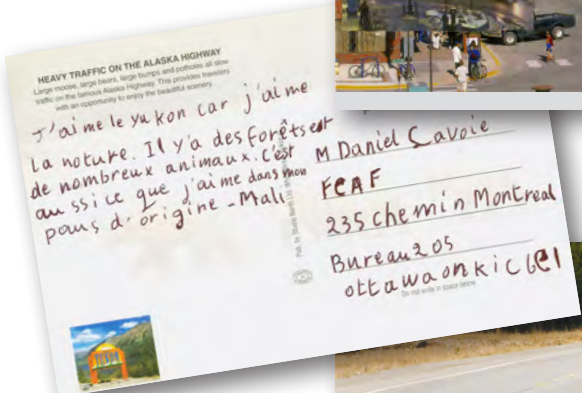 HEAVY TRAFFIC ON THE ALASKA HIGHWAY
Large moose, large bears, large bumps and potholes all slow
traffic on the famous Alaska Highway. This provides travelers
with an opportunity to enjoy the beautiful scenery.
J'aime le yukon car j'aime
la noture. Il y'a des Forêts et
de nombreux animaux. C'est
au ssi ce que j'aime dans mon
pous d'origine - Mali
M Daniel Cavoie
FCAF
235 chemin Montreal
Bureau 205
ottawa on kic 6e1
Do not write in space below
YUKON